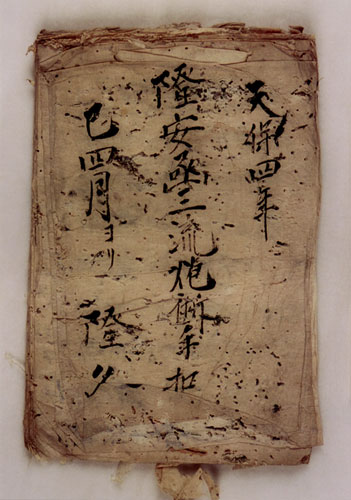 天保四年
隆安函三流炮術手扣
巳四月ヨリ 隆久